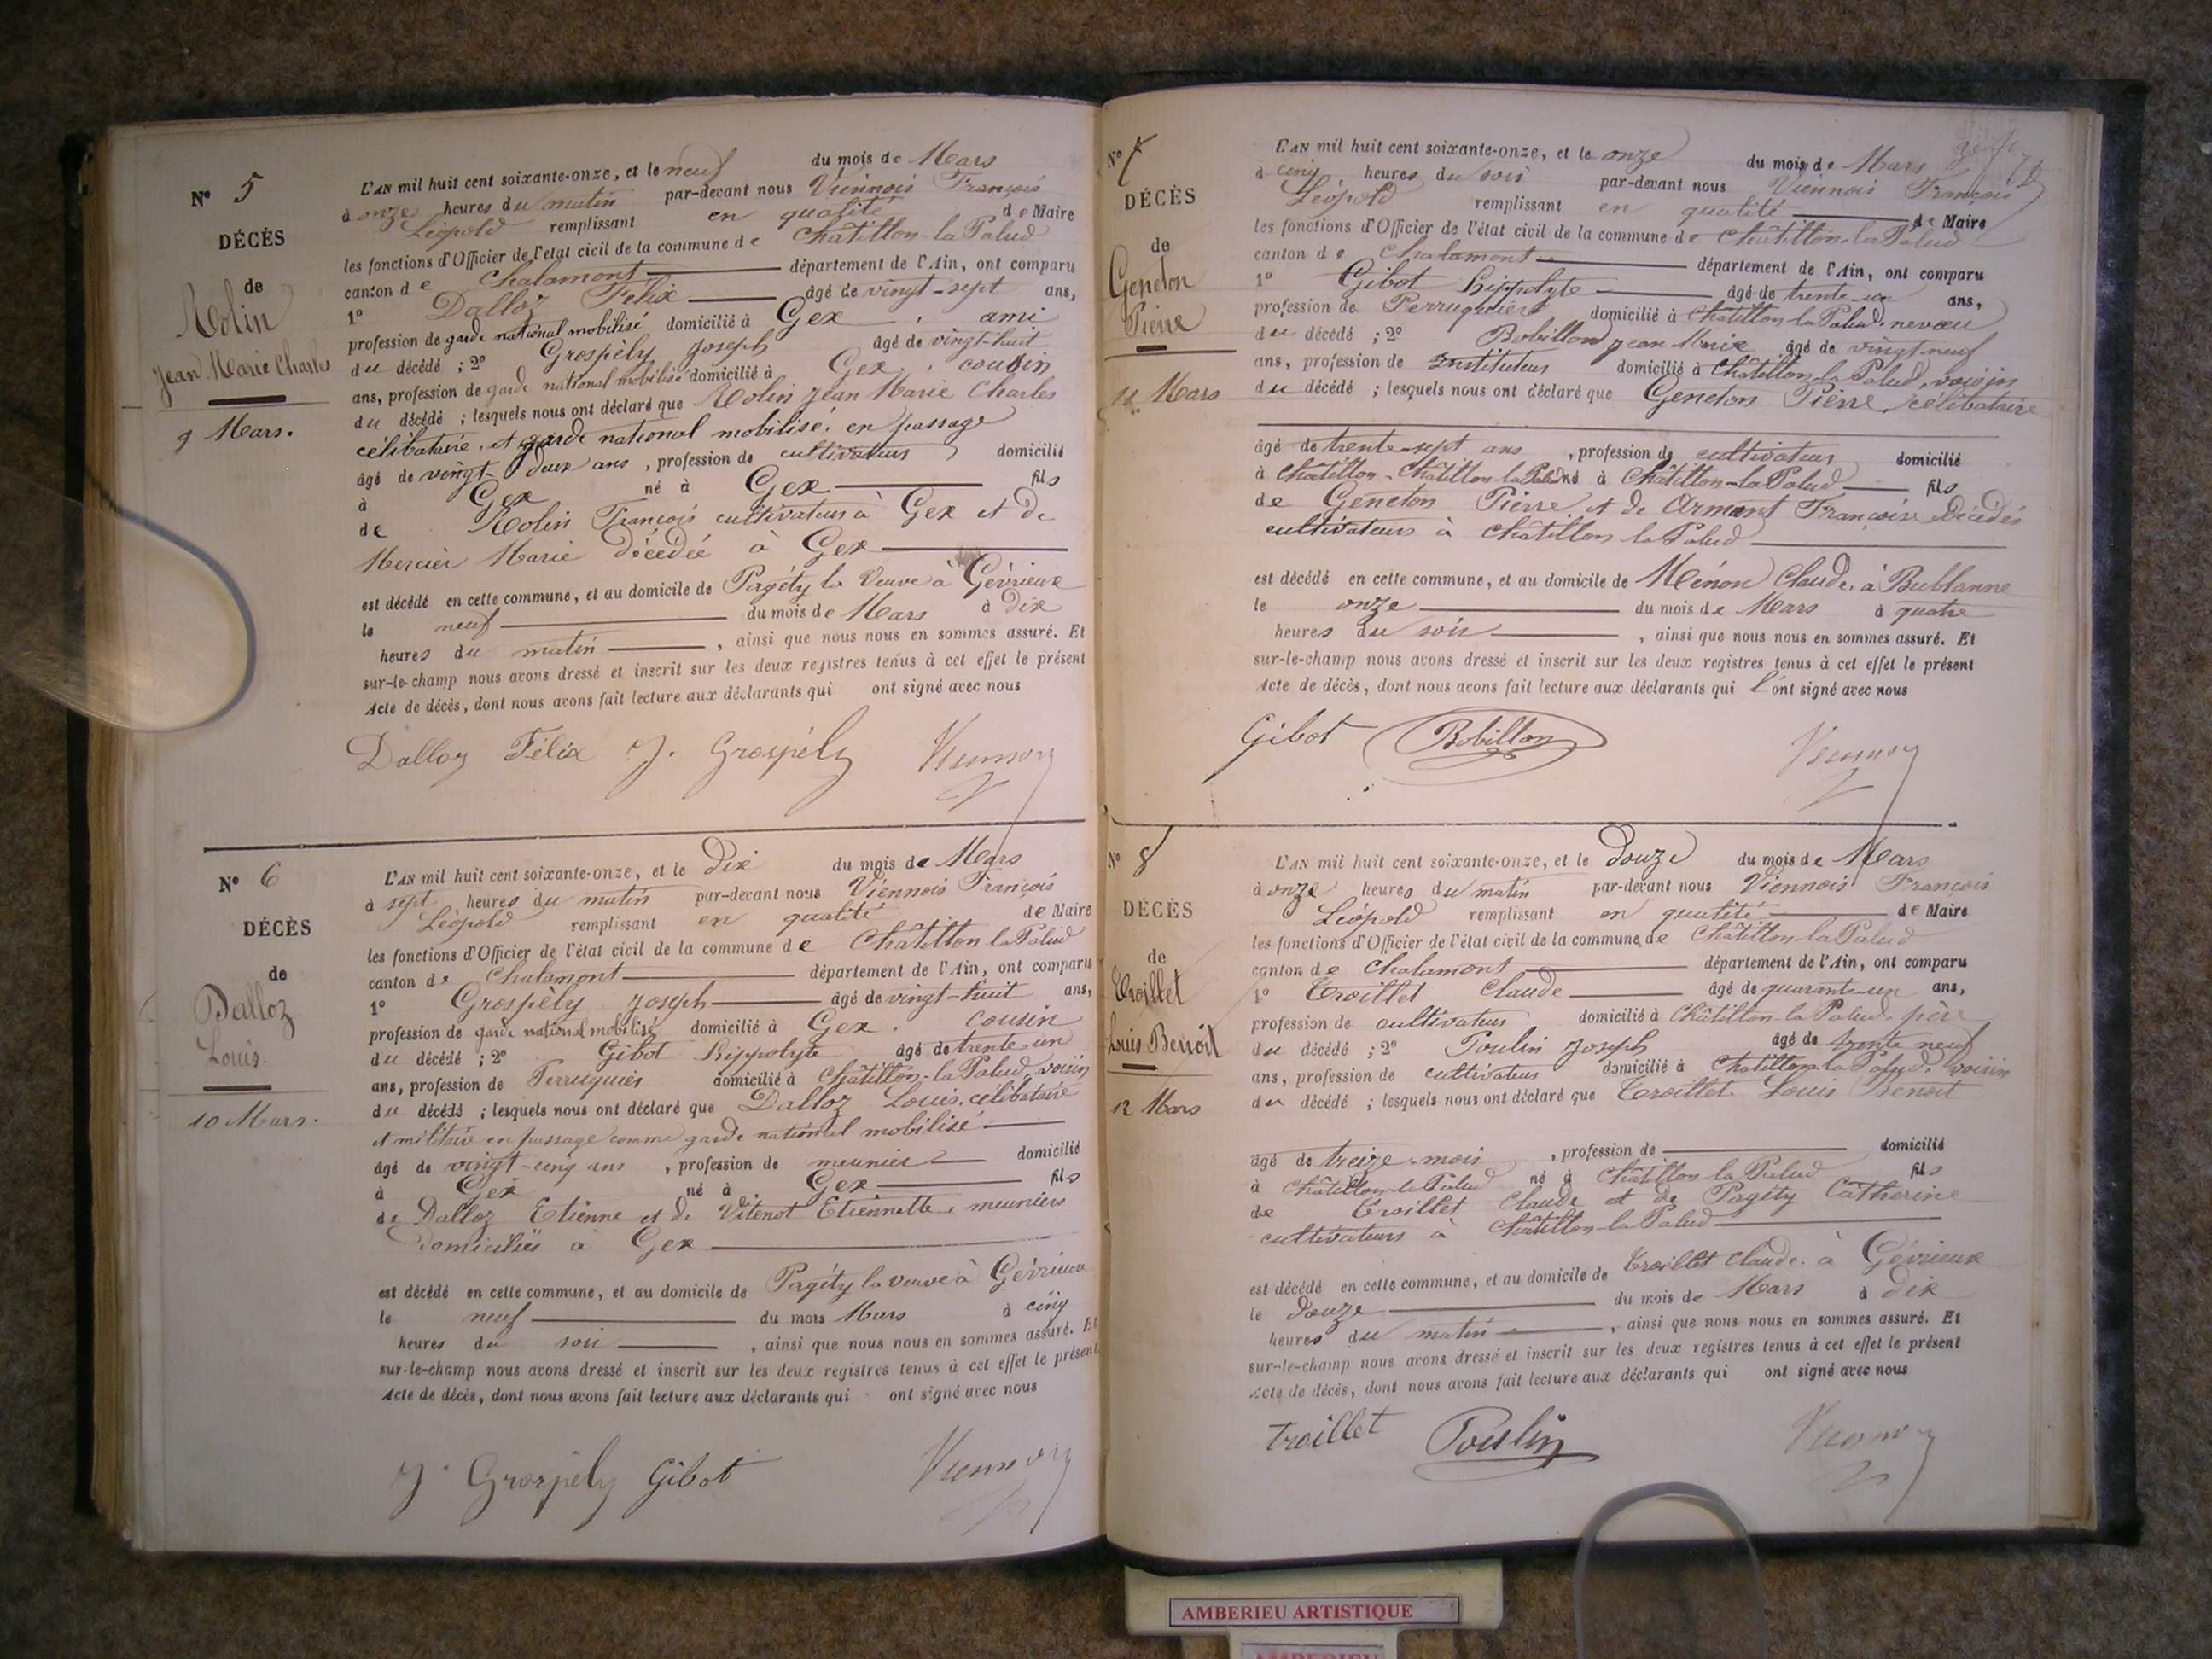 Nº 5
DÉCÈS
de
Rolin
Jean Marie Charles
9 Mars.
L'AN mil huit cent soixante-onze, et le neuf du mois de Mars
à onze heures du matin par-devant nous Viennois François
Léopold remplissant en qualité de Maire
les fonctions d'Officier de l'état civil de la commune de Châtillon-la-Palud
canton de Chalamont département de l'Ain, ont comparu
1º Dalloz Félix âgé de vingt-sept ans,
profession de garde national mobilisé domicilié à Gex, ami
du décédé ; 2º Grospèly Joseph âgé de vingt-huit
ans, profession de garde national mobilisé domicilié à Gex, cousin
du décédé ; lesquels nous ont déclaré que Rolin Jean Marie Charles
célibataire, et garde national mobilisé, en passage
âgé de vingt-deux ans, profession de cultivateur, domicilié
à Gex né à Gex fils
de Rolin François cultivateur à Gex et de
Mercier Marie décédée à Gex
est décédé en cette commune, et au domicile de Pagéty la Veuve à Gévrieux
le neuf du mois de Mars à dix
heures du matin, ainsi que nous nous en sommes assuré. Et
sur-le-champ nous avons dressé et inscrit sur les deux registres tenus à cet effet le présent
Acte de décès, dont nous avons fait lecture aux déclarants qui ont signé avec nous
Dalloz Félix J. Grospèly Viennois
Nº 6
DÉCÈS
de
Dalloz
Louis.
10 Mars.
L'AN mil huit cent soixante-onze, et le Dix du mois de Mars
à sept heures du matin par-devant nous Viennois François
Léopold remplissant en qualité de Maire
les fonctions d'Officier de l'état civil de la commune de Châtillon la Palud
canton de Chalamont département de l'Ain, ont comparu
1º Grospèly Joseph âgé de vingt-huit ans,
profession de garde national mobilisé domicilié à Gex, cousin
du décédé ; 2º Gibot Hippolyte âgé de trente-un
ans, profession de Perruquier domicilié à Châtillon-la-Palud, voisin
du décédé ; lesquels nous ont déclaré que Dalloz Louis, célibataire
et militaire en passage comme garde national mobilisé
âgé de vingt-cinq ans, profession de meunier domicilié
à Gex né à Gex fils
de Dalloz Etienne et de Vitenot Etiennette, meuniers
domiciliés à Gex
est décédé en cette commune, et au domicile de Pagéty la veuve à Gévrieux
le neuf du mois Mars à cinq
heures du soir, ainsi que nous nous en sommes assuré. Et
sur-le-champ nous avons dressé et inscrit sur les deux registres tenus à cet effet le présent
Acte de décès, dont nous avons fait lecture aux déclarants qui ont signé avec nous
J. Grospèly Gibot Viennois
Nº 7
DÉCÈS
de
Geneton
Pierre
11 Mars
L'AN mil huit cent soixante-onze, et le onze du mois de Mars
à cinq heures du soir par-devant nous Viennois François
Léopold remplissant en qualité de Maire
les fonctions d'Officier de l'état civil de la commune de Châtillon-la-Palud
canton de Chalamont département de l'Ain, ont comparu
1º Gibot Hippolyte âgé de trente-un ans,
profession de Perruquier domicilié à Châtillon la Palud, neveu
du décédé ; 2º Bobillon Jean Marie âgé de vingt-neuf
ans, profession de Instituteur domicilié à Châtillon-la-Palud, voisin
du décédé ; lesquels nous ont déclaré que Geneton Pierre, célibataire
âgé de trente-sept ans, profession de cultivateur domicilié
à Châtillon-la-Palud né à Châtillon-la-Palud fils
de Geneton Pierre, et de Armont Françoise Décédés
cultivateurs à Châtillon la Palud
est décédé en cette commune, et au domicile de Ménon Claude, à Bublanne
le onze du mois de Mars à quatre
heures du soir, ainsi que nous nous en sommes assuré. Et
sur-le-champ nous avons dressé et inscrit sur les deux registres tenus à cet effet le présent
Acte de décès, dont nous avons fait lecture aux déclarants qui l'ont signé avec nous
Gibot Bobillon Viennois
Nº 8
DÉCÈS
de
Troillet
Louis Benoit
12 Mars
L'AN mil huit cent soixante-onze, et le Douze du mois de Mars
à onze heures du matin par-devant nous Viennois François
Léopold remplissant en qualité de Maire
les fonctions d'Officier de l'état civil de la commune de Châtillon-la-Palud
canton de Chalamont département de l'Ain, ont comparu
1º Troillet Claude âgé de quarante-un ans,
profession de cultivateur domicilié à Châtillon-la-Palud, père
du décédé ; 2º Poulin Joseph âgé de trente neuf
ans, profession de cultivateur domicilié à Châtillon-la-Palud, voisin
du décédé ; lesquels nous ont déclaré que Troillet Louis Benoit
âgé de treize mois, profession de domicilié
à Châtillon-la-Palud né à Châtillon la Palud fils
de Troillet Claude et de Pagéty Catherine
cultivateurs à Châtillon-la-Palud
est décédé en cette commune, et au domicile de Troillet Claude, à Gévrieux
le Douze du mois de Mars à dix
heures du matin, ainsi que nous nous en sommes assuré. Et
sur-le-champ nous avons dressé et inscrit sur les deux registres tenus à cet effet le présent
Acte de décès, dont nous avons fait lecture aux déclarants qui ont signé avec nous
Troillet Poulin Viennois
AMBERIEU ARTISTIQUE
AMBERIEU